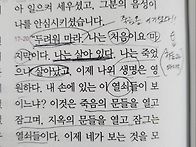 아 일으켜 세우셨고, 그분의 음성이 나
를 안심시키셨습니다.
17-20 "두려워 마라. 나는 처음이요 마
지막이다. 나는 살아 있다. 나는 죽었
으나 살아났고, 이제 나의 생명은 영
원하다. 내 손에 있는 이 열쇠들이 보
이느냐? 이것은 죽음의 문들을 열고
잠그며, 지옥의 문들을 열고 잠그는
열쇠들이다. 이제 네가 보는 것을 모